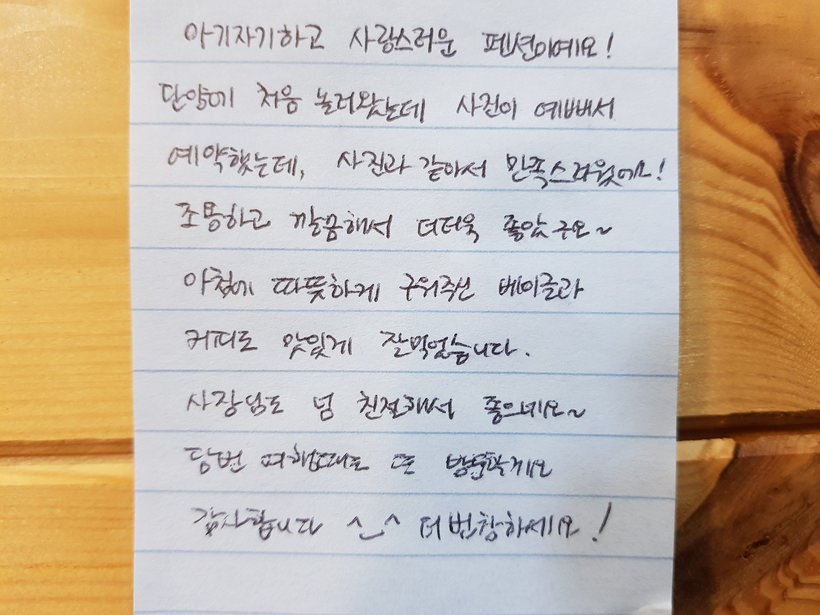 아기자기하고 사랑스러운 펜션이예요!
단양에 처음 놀러왔는데 사진이 예뻐서
예약했는데, 사진과 같아서 만족스러웠어요!
조용하고 깔끔해서 더더욱 좋았구요~
아침에 따뜻하게 구워주신 베이글과
커피도 맛있게 잘먹었습니다.
사장님도 넘 친절해서 좋으네요~
담번 여행때도 또 방문할게요
감사합니다 ^_^ 더 번창하세요!